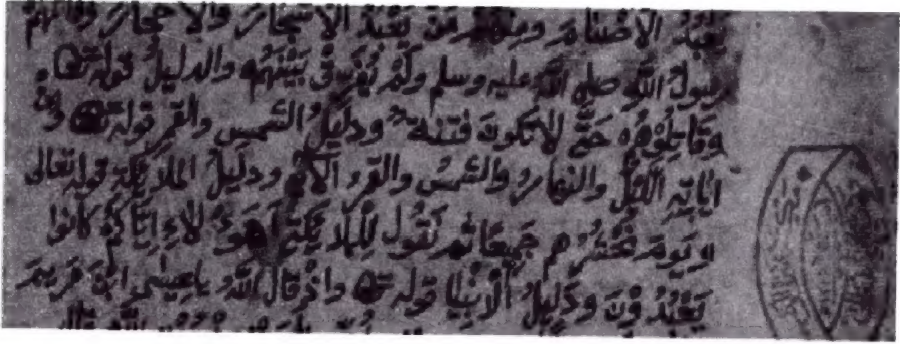 يعبد الأصنام ومنهم من يعبد الأشجار والأحجار وقاتلهم
رسول الله صلى الله عليه وسلم ولم يفرق بينهم والدليل قوله تعالى
وقاتلوهم حتى لا تكون فتنة ودليل الشمس والقمر قوله تعالى ومن
اياته الليل والنهار والشمس والقمر الآية ودليل الملايكة قوله تعالى
ويوم نحشرهم جميعا ثم نقول للملايكة أهؤلاء اياكم كانوا
يعبدون ودليل الانبيا قوله تعالى واذ قال الله يا عيسى ابن مريم